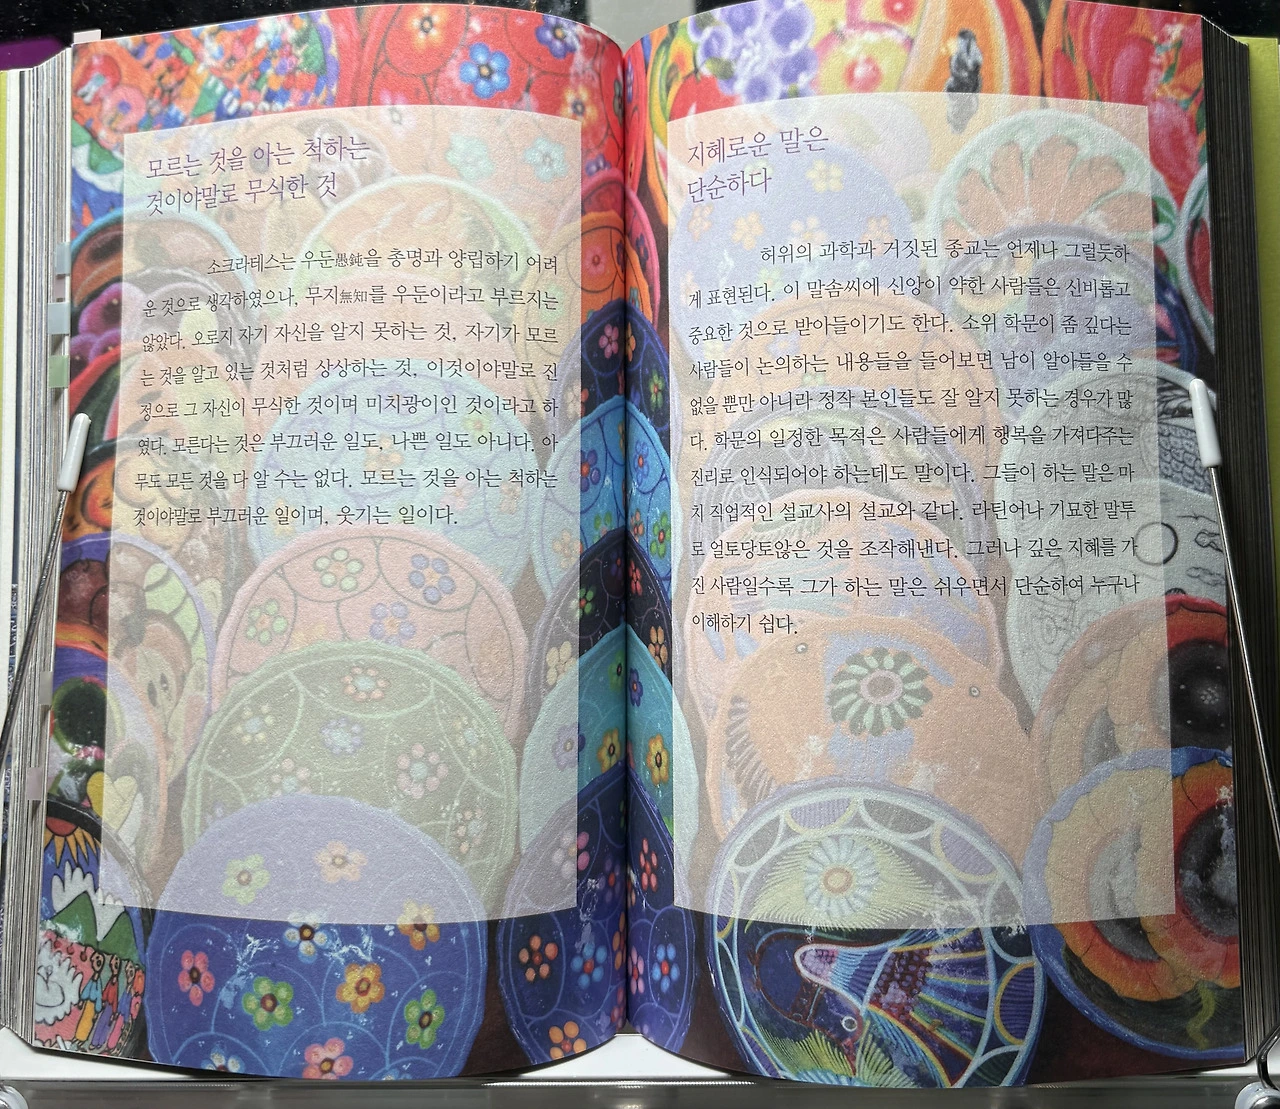 모르는 것을 아는 척하는
것이야말로 무식한 것
소크라테스는 우둔愚鈍을 총명과 양립하기 어려
운 것으로 생각하였으나, 무지無知를 우둔이라고 부르지는
않았다. 오로지 자기 자신을 알지 못하는 것, 자기가 모르
는 것을 알고 있는 것처럼 상상하는 것, 이것이야말로 진
정으로 그 자신이 무식한 것이며 미치광이인 것이라고 하
였다. 모른다는 것은 부끄러운 일도, 나쁜 일도 아니다. 아
무도 모든 것을 다 알 수는 없다. 모르는 것을 아는 척하는
것이야말로 부끄러운 일이며, 웃기는 일이다.
지혜로운 말은
단순하다
허위의 과학과 거짓된 종교는 언제나 그럴듯하
게 표현된다. 이 말솜씨에 신앙이 약한 사람들은 신비롭고
중요한 것으로 받아들이기도 한다. 소위 학문이 좀 깊다는
사람들이 논의하는 내용들을 들어보면 남이 알아들을 수
없을 뿐만 아니라 정작 본인들도 잘 알지 못하는 경우가 많
다. 학문의 일정한 목적은 사람들에게 행복을 가져다주는
진리로 인식되어야 하는데도 말이다. 그들이 하는 말은 마
치 직업적인 설교사의 설교와 같다. 라틴어나 기묘한 말투
로 얼토당토않은 것을 조작해낸다. 그러나 깊은 지혜를 가
진 사람일수록 그가 하는 말은 쉬우면서 단순하여 누구나
이해하기 쉽다.